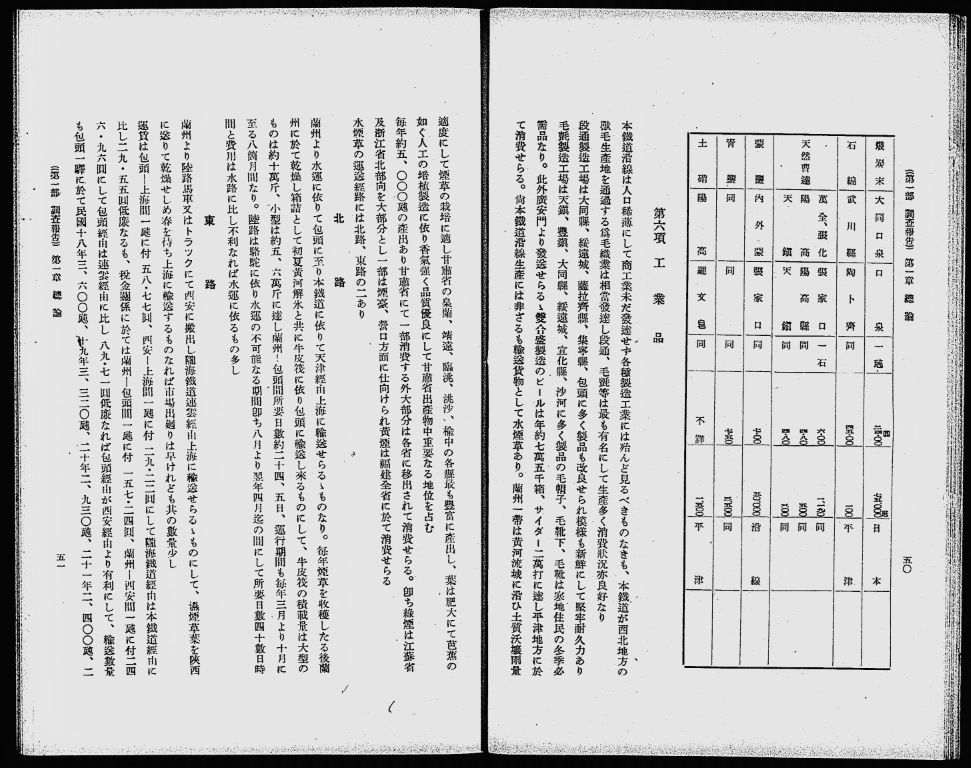 (第一部 調査報告) 第一章 總論
五〇
煤炭末 大同口泉 口泉 一瓲 日本
石綿 武川縣 陶卜齊 同 平津
天然曹達 萬全張化 張家口 一石 同
陽高 陽高縣 同 同
天鎭 天鎭 同 同
蒙鹽 內外蒙 張家口 同 沿線
青鹽 同 同 同 同
土硝 陽高 羅文皂 同 不詳 平津
第六項 工業品
本鐵道沿線は人口稀薄にして商工業未だ發達せず各種製造工業には殆んど見るべきものなきも、本鐵道が西北地方の
獸毛生產地を通過する爲毛織業は相當發達し段通、毛氈等は最も有名にして生產多く消費狀況亦良好なり
段通製造工場は大同縣、綏遠城、薩拉齊縣、集寧縣、包頭に多く製品も改良せられ模樣も新鮮にして堅牢耐久力あり
毛氈製造工場は天鎭、豐鎭、大同縣、綏遠城、宣化縣、沙河に多く製品の毛帽子、毛靴下、毛靴は寒地住民の冬季必
需品なり。此外廣安門より發送せらるゝ雙合盛製造のビールは年約七萬五千箱、サイダー二萬打に達し平津地方に於
て消費せらる。尙本鐵道沿線生產には非ざるも輸送貨物として水煙草あり。蘭州一帶は黃河流域に沿ひ土質沃壤雨量
適度にして煙草の栽培に適し甘肅省の皐蘭、靖遠、臨洮、洮沙、楡中の各縣最も豐富に產出し、葉は肥大にて芭蕉の
如く人工の培植製造に依り香氣强く品質優良にして甘肅省出產物中重要なる地位を占む
每年約五、〇〇〇瓲の產出あり甘肅省にて一部消費する外大部分は各省に移出されて消費せらる。卽ち綠煙は江蘇省
及浙江省北部向を大部分とし一部は煙臺、營口方面に仕向けられ黃煙は福建全省に於て消費せらる
水煙草の運送經路には北路、東路の二あり
北路
蘭州より水運に依りて包頭に至り本鐵道に依りて天津經由上海に輸送せらるゝものなり。每年煙草を收穫したる後蘭
州に於て乾燥し箱詰として初夏黃河解氷と共に牛皮筏に依り包頭に輸送し來るものにして、牛皮筏の積載量は大型の
ものは約十萬斤、小型は約五、六萬斤に達し蘭州―包頭間所要日數約二十四、五日、運行期間も每年三月より十月に
至る八箇月間なり。陸路は駱駝に依り水運の不可能なる期間卽ち八月より翌年四月迄の間にして所要日數四十數日時
間と費用は水路に比し不利なれば水運に依るもの多し
東路
蘭州より陸路馬車又はトラックにて西安に搬出し隴海鐵道連雲經由上海に輸送せらるゝものにして、濕煙草葉を陝西
に送りて乾燥せしめ春を待ち上海に輸送するものなれば市場出廻りは早けれども其の數量少し
運賃は包頭―上海間一瓲に付 五八・七七圓、西安―上海間一瓲に付 二九・二二圓にして隴海鐵道經由は本鐵道經由に
比し二九・五五圓低廉なるも、稅金關係に於ては蘭州―包頭間一瓲に付 一五七・二四圓、蘭州―西安間一瓲に付二四
六・九六圓にして包頭經由は連雲經由に比し 八九・七一圓低廉なれば包頭經由が西安經由より有利にして、輸送數量
も包頭一驛に於て民國十八年三、六〇〇瓲、十九年三、三二〇瓲、二十年二、九三〇瓲、二十一年二、四〇〇瓲、二
(第一部 調査報告) 第一章 總論
五一